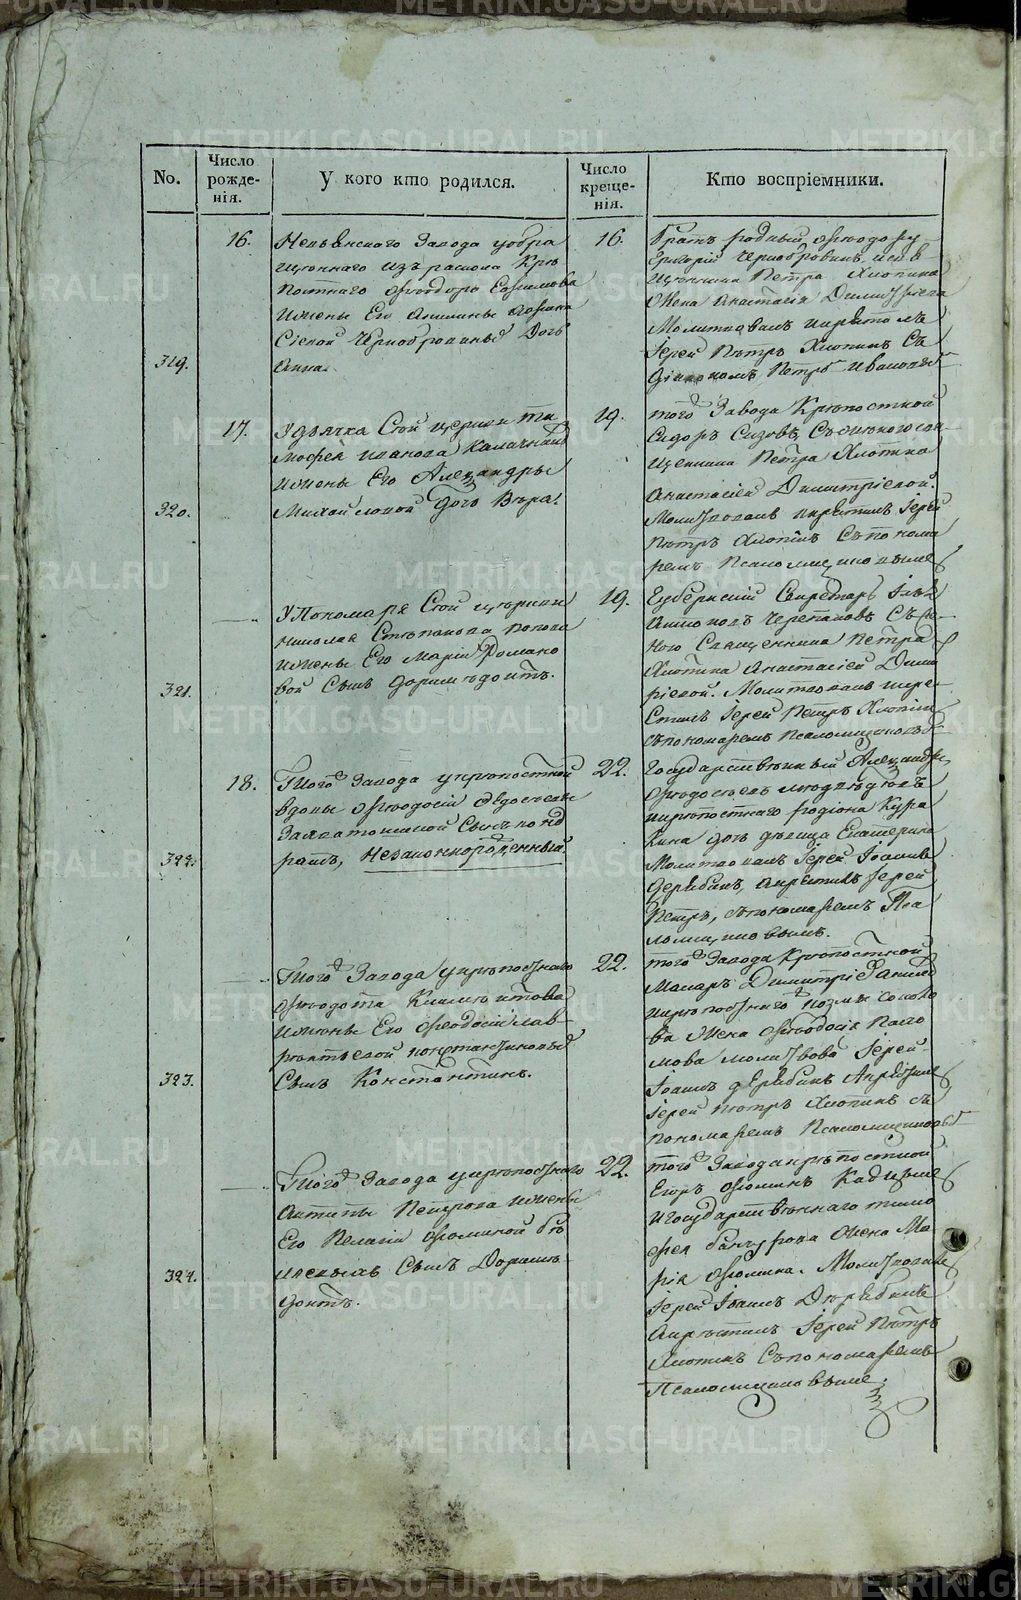 METRIKI.GASO-URAL.RU
No.
Число рожде-
нія.
У кого кто родился.
Число креще-
нія.
Кто воспріемники.
16.
Невьянскаго Завода у обра
щеннаго изъ раскола Крѣ
постнаго Ѳеодора Евѳимова
и жены Его
Чернобровиныхъ Дочь
319.
Анна
16.
братъ родный Ѳеодору
Григорій Черноброvinъ и Свя-
щенника Петра Хлопина
Жена Анастасія Димитріева
Молитвовалъ и крестилъ
Іерей Петръ Хлопинъ Съ
Діакономъ Петромъ
17.
У дьячка Сей церкви Ти
моѳея Иванова
и жены Его Александры
320.
Михайловой Дочь Вѣра.
19.
того Завода Крѣпостной
Сидоръ Сизовъ, Съ женою свя-
щенника Петра Хлопина
Анастасіей Димитріевой.
Молитвовалъ и крестилъ Іерей
Петръ Хлопинъ Съ понома
ремъ Псаломщиковымъ
У Пономаря Сей церкви
Николая Степанова Попова
и жены Его Маріи Романо
321.
вой Сынъ Доримедонтъ.
19.
Губернскій Секретарь
Черепановъ Съ же-
ною Священника Петра
Хлопина Анастасіей Дими
тріевой. Молитвовалъ и кре-
стилъ Іерей Петръ Хлопинъ
съ пономаремъ Псаломщиковымъ
18.
Того Завода у крѣпостной
вдовы Ѳеодосіи
Сынъ Конд
322.
ратъ, Незаконнорожденный
22.
Государственный Александръ
и крѣпостнаго Родіона Кура
кина дочь дѣвица Екатерина
Молитвовалъ Іерей Іоаннъ
Дерябинъ, а крестилъ Іерей
Петръ, съ пономаремъ Пса
ломщиковымъ.
Того Завода у крѣпостнаго
Ѳеодота
и жены Его Ѳеодосіи Лав
рентьевой
323.
Сынъ Константинъ.
22.
того Завода Крѣпостной
Димитрій
и крѣпостнаго Козмы
ва Жена Ѳеодосія
Молитвовалъ Іерей
Іоаннъ Дерябинъ А крестилъ
Іерей Петръ Хлопинъ съ
пономаремъ Псаломщиковымъ
Того Завода у крѣпостнаго
Антипы Петрова и жены
Его Пелагіи Ѳоминой
324.
Сынъ Дориме-
донтъ.
22.
того Завода крѣпостной
Егоръ Ѳоминъ
и Государственнаго Тимо
ѳея Жена Ма
рія Ѳомина. Молитвовалъ
Іерей Іоаннъ Дерябинъ
А крестилъ Іерей Петръ
Хлопинъ Съ пономаремъ
Псаломщиковымъ.